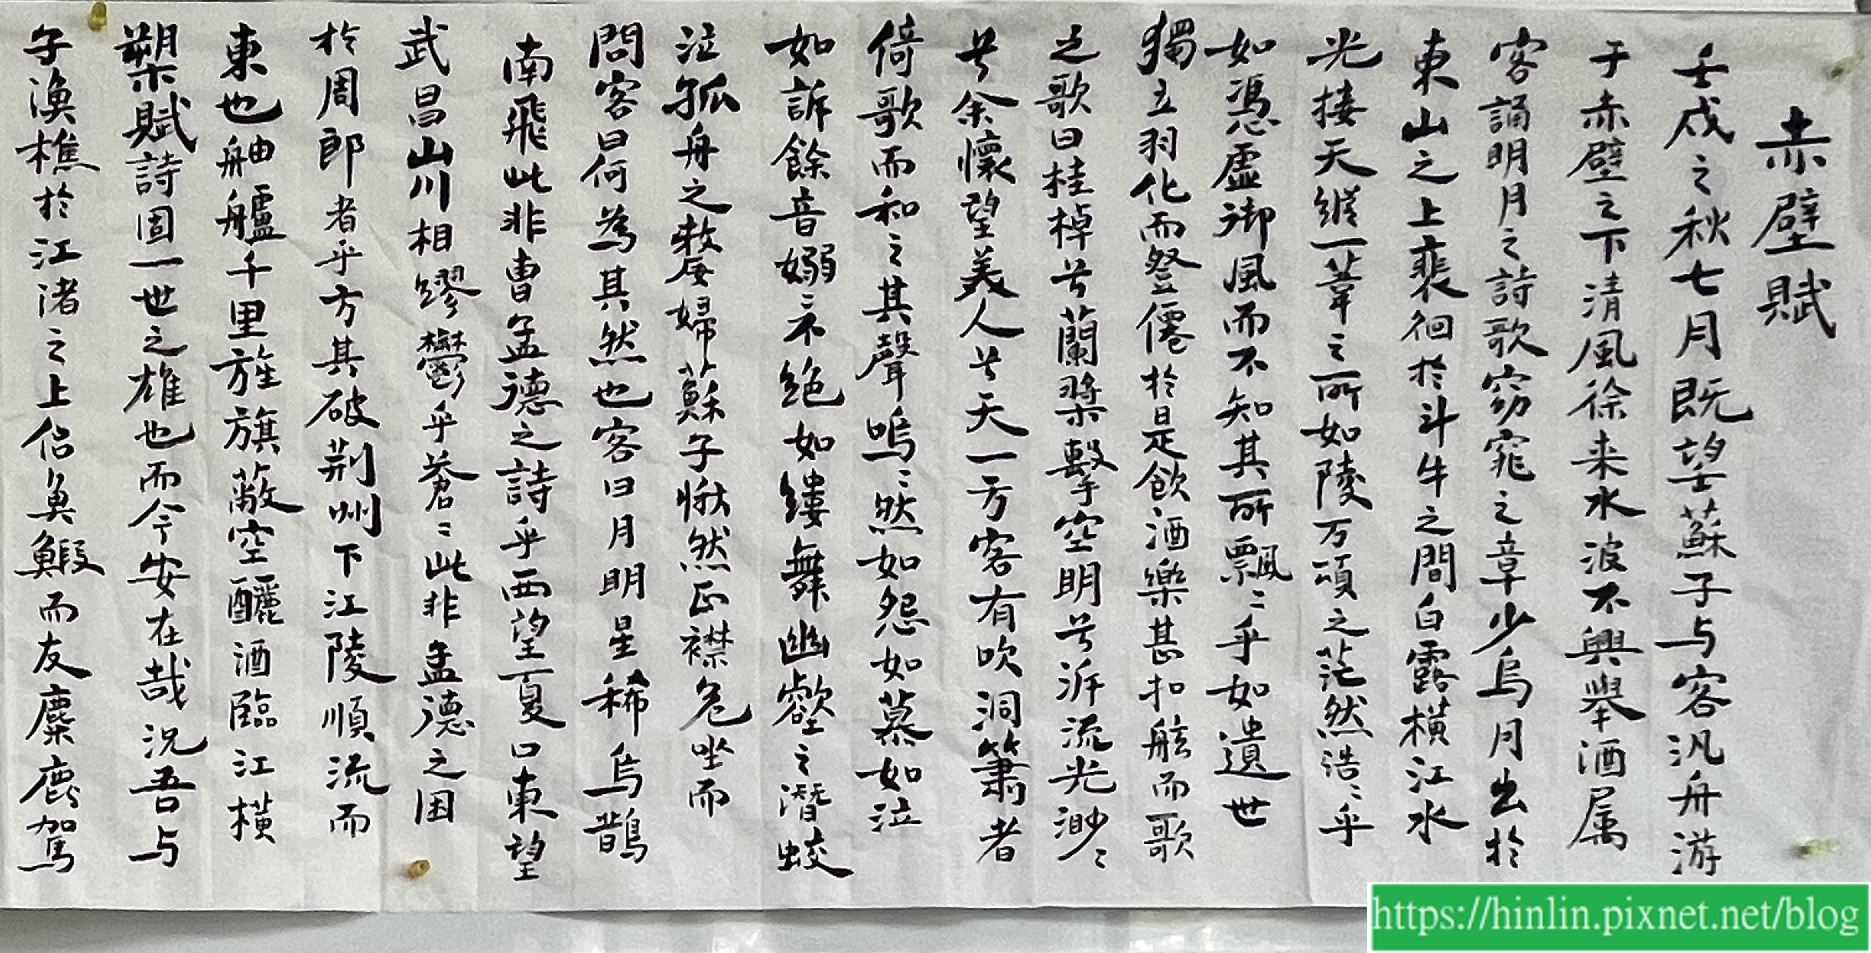 赤壁賦
壬戌之秋七月既望蘇子与客汎舟游
于赤壁之下清風徐来水波不興舉酒属
客誦明月之詩歌窈窕之章少焉月出於
東山之上裴徊於斗牛之間白露橫江水
光接天縱一葦之所如陵万頃之茫然浩〻乎
如馮虛御風而不知其所飄〻乎如遺世
獨立羽化而登僊於是飲酒樂甚扣舷而歌
之歌曰桂棹兮蘭槳擊空明兮泝流光渺〻
兮余懷望美人兮天一方客有吹洞簫者
倚歌而和之其聲嗚〻然如怨如慕如泣
如訴餘音嫋〻不絕如縷舞幽壑之潛蛟
泣孤舟之嫠婦蘇子愀然正襟危坐而
問客曰何為其然也客曰月明星稀烏鵲
南飛此非曹孟德之詩乎西望夏口東望
武昌山川相繆鬱乎蒼〻此非孟德之困
於周郎者乎方其破荆州下江陵順流而
東也舳艫千里旌旗蔽空釃酒臨江橫
槊賦詩固一世之雄也而今安在哉況吾与
子漁樵於江渚之上侶魚鰕而友麋鹿駕
https://hinlin.pixnet.net/blog